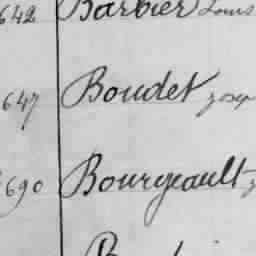 642 Barbier Louis
647 Boudet Josep
690 Bourgeault